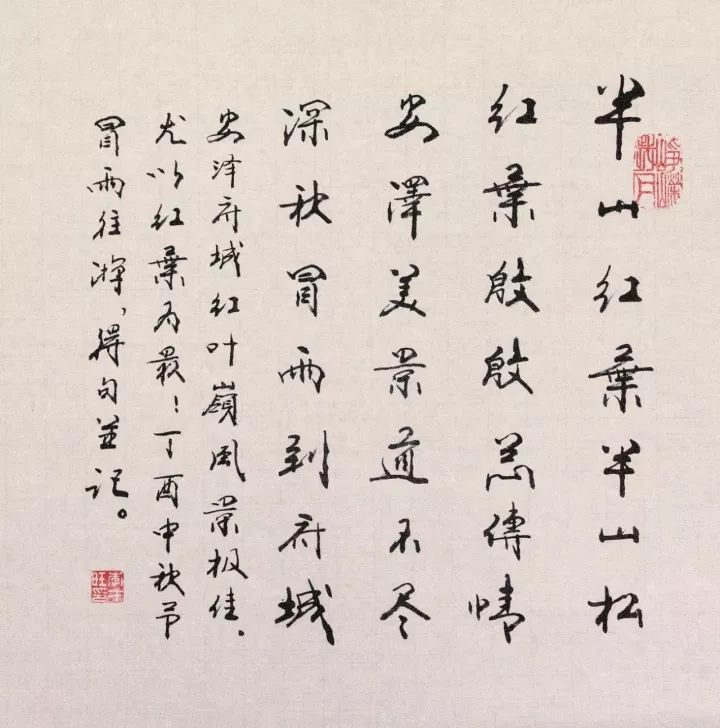 半山红葉半山松
红葉殷殷总傳情
安澤美景道不尽
深秋冒雨到府城
安泽府城红叶嶺风景极佳、
尤以红葉为最！丁酉中秋节
冒雨往游、得句並记。